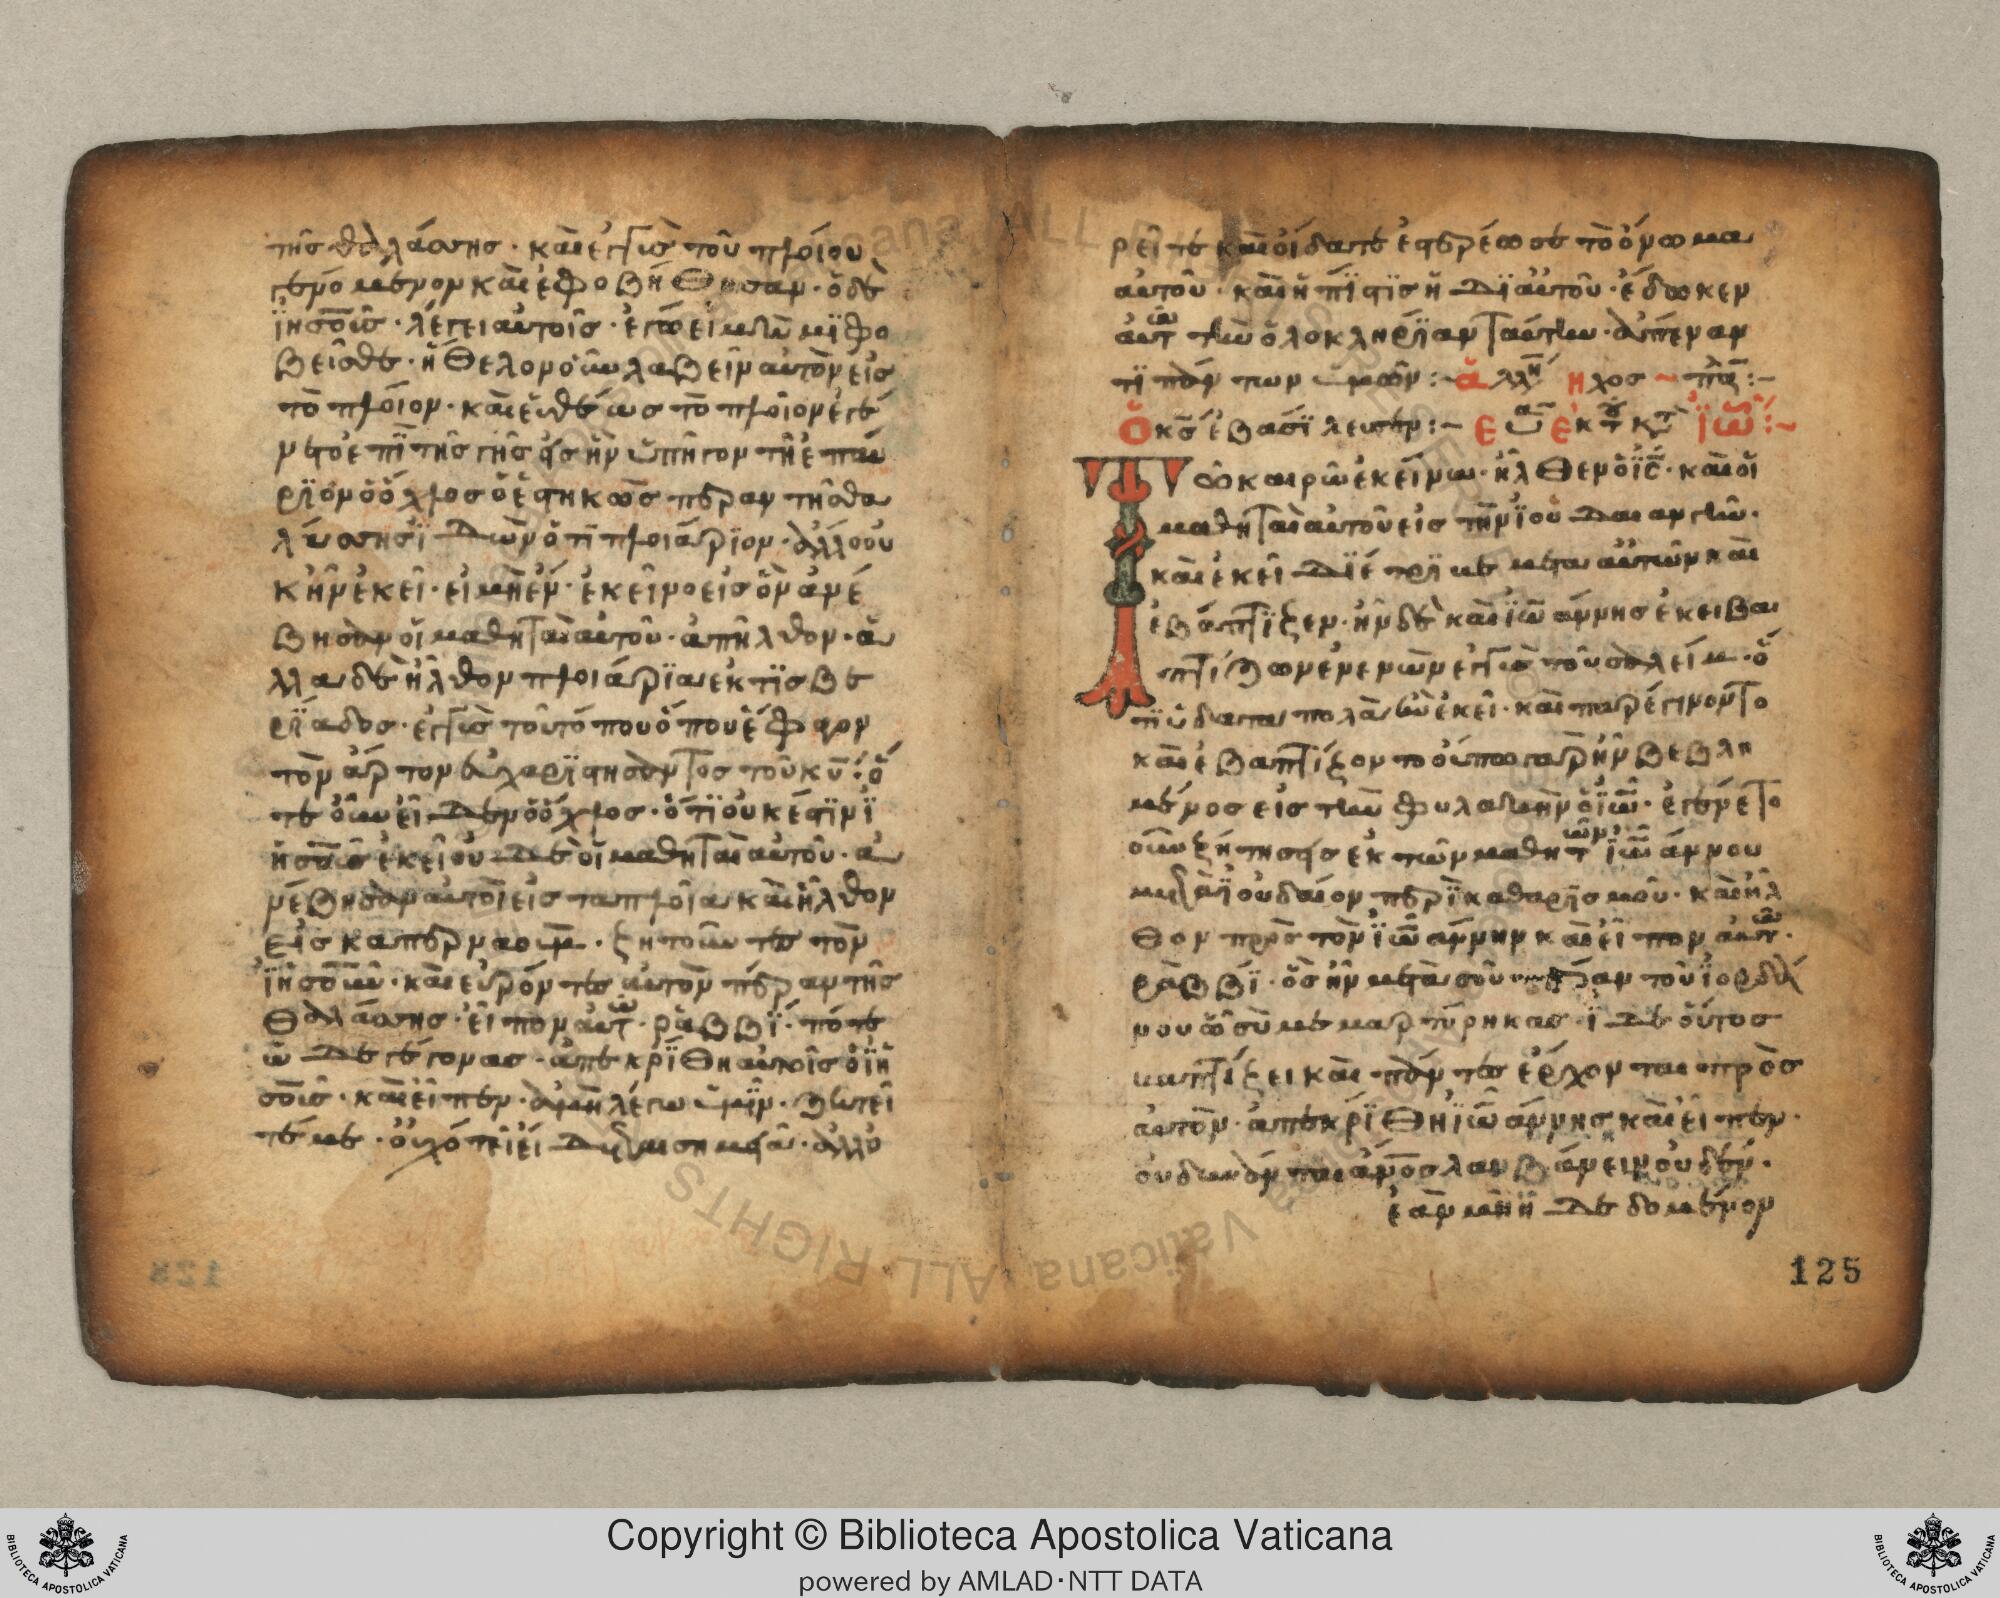 τῆς θαλάσσης · καὶ ἐγγὺς τοῦ πλοίου
γενόμενον καὶ ἐφοβήθησαν · ὁ δὲ
ϊησοῦς · λέγει αὐτοῖς · ἐγώ εἰμι μὴ φο
βεῖσθε · ἤθελον οὖν λαβεῖν αὐτὸν εἰς
τὸ πλοίον · καὶ εὐθέως τὸ πλοῖον ἐγέ
νετο ἐπὶ τῆς γῆς εἰς ἣν ὑπῆγον τῇ ἐπαύ
ριον ὁ ὄχλος ὁ ἑστηκὼς πέραν τῆς θα
λάσσης ϊδὼν ὅτι πλοιάριον · ἄλλο οὐ
κ ἦν ἐκεῖ · εἰ μὴ ἓν · ἐκεῖνο εἰς ὃ ἀνέ
βησαν οἱ μαθηταὶ αὐτοῦ · ἀπῆλθον · ἄ
λλα δὲ ἦλθον πλοιάρια ἐκ τισβε
ριάδος · ἐγγὺς τοῦ τόπου ὅπου ἔφαγον
τὸν ἄρτον εὐχαριστήσαντος τοῦ κυ · ὅ
τε οὖν εἶδεν ὁ ὄχλος · ὅτι οὐκ ἔστιν ϊ
ησοῦς ἐκεῖ οὐδὲ οἱ μαθηταὶ αὐτοῦ · ἀ
νέβησαν αὐτοὶ εἰς τα πλοῖα καὶ ἦλθον
εἰς καπερναουμ · ζητοῦντες τὸν
ϊησοῦν · καὶ εὑρόντες αὐτὸν πέραν τῆς
θαλάσσης · εἶπον αὐτῶ · ῥαββϊ · πότε
ὧδε γέγονας · ἀπεκρίθη αὐτοῖς ὁ ϊη
σοῦς · καὶ εἶπεν · ἀμὴν λέγω ὑμῖν · ζητεῖ
τέ με · οὐχ ὅτι εἴδετε σημεῖα · ἀλλ ὁ
ρεῖτε καὶ οἴδατε ἐστερέωσε τὸ ὄνομα
αὐτοῦ · καὶ ἡ πίστις ἡ δι αὐτοῦ · ἔδωκεν
αὐτῶ τὴν ὁλοκληρίαν ταύτην · ἀπέναν
τι πάντων ὑμῶν :~ ἀλλη ηχος ~ πλα :~
Ὁ κς ἐβασίλευσεν :~ Ευα ἐκ τοῦ κτ ϊω :~
Τῶ καιρῶ ἐκείνω · ἦλθεν ὁ ϊς · καὶ οἱ
μαθηταὶ αὐτοῦ εἰς τὴν ϊουδαιαν γῆν ·
καὶ ἐκεῖ διέτριβε μετα αὐτῶν καὶ
ἐβάπτιζεν · ἦν δὲ καὶ ϊωάννης ἐκει βα
πτίζων ἐν ενὼν ἐγγὺς τοῦ σαλείμ · ὅ
τι ὕδατα πολλὰ ἦν ἐκεῖ · καὶ παρέγινοντο
καὶ ἐβαπτίζοντο οὔπω γαρ ἦν βεβλη
μένος εἰς τὴν φυλακὴν ὁ ϊω · ἐγένετο
οὖν ζήτησις ἐκ τῶν μαθητῶν ϊωάννου
μετὰ ϊουδαίον περὶ καθαρισμοῦ · καὶ ἦλ
θον πρὸς τὸν ϊωάννην καὶ εἶπον αὐτῶ ·
ῥαββϊ · ὃς ἦν μετὰ σοῦ πέραν τοῦ ϊορδά
νου ᾧ σὺ μεμαρτύρηκας · ϊδε οὗτος
βαπτίζει καὶ πάντες ἔρχονται πρὸς
αὐτὸν · ἀπεκρίθη ϊωάννης καὶ εἶπεν ·
οὐ δύναται ἄνος λαμβάνειν οὐδέν ·
ἐὰν μὴ ἦ δεδομένον
125
Copyright © Biblioteca Apostolica Vaticana
powered by AMLAD·NTT DATA